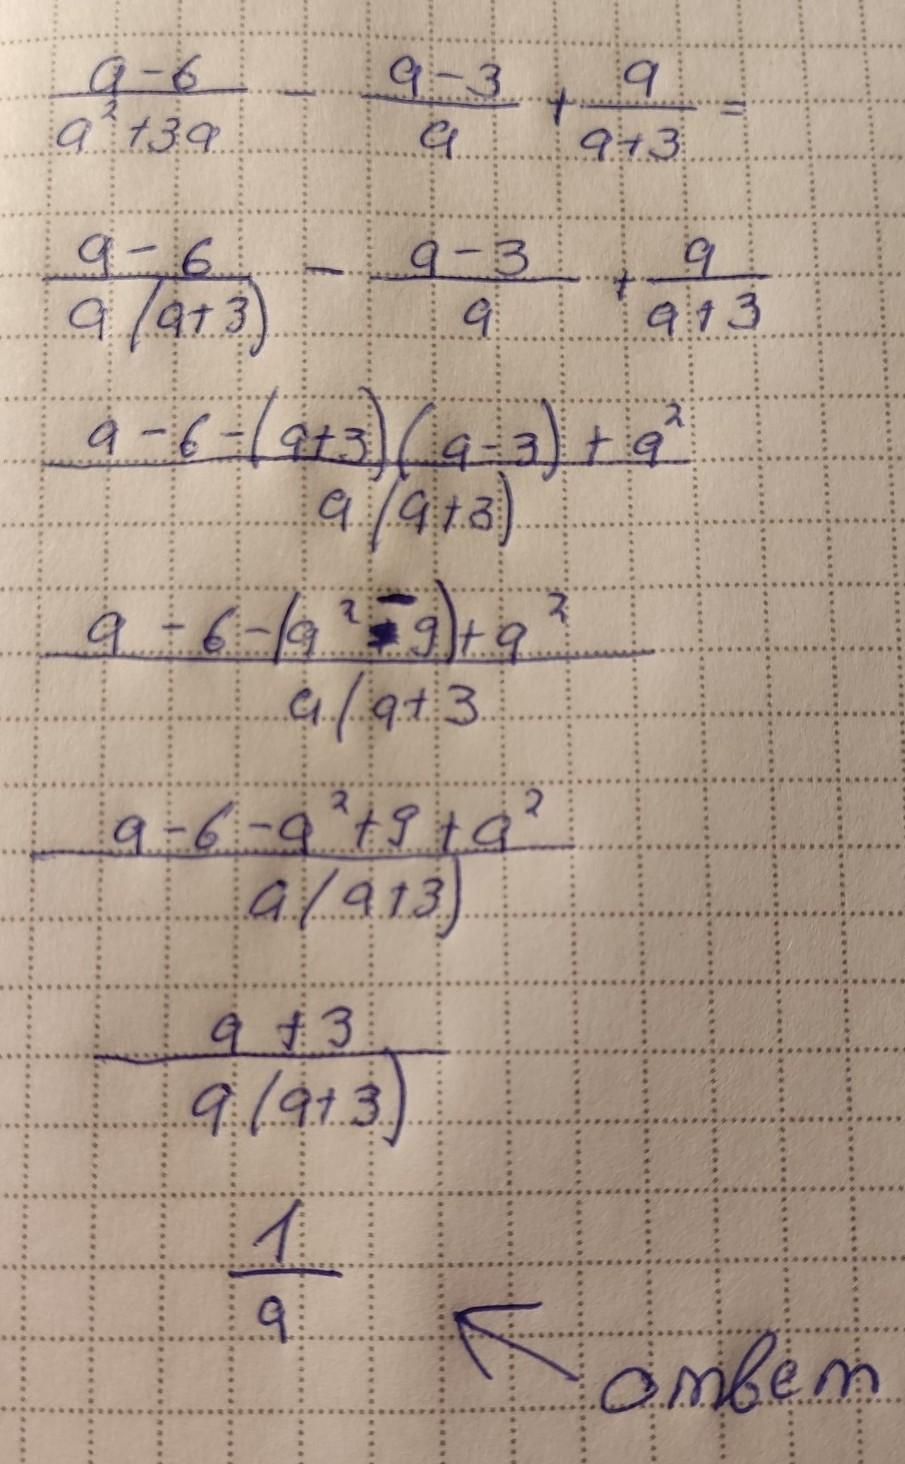 (a-6)/(a²+3a) - (a-3)/a + a/(a+3) =
(a-6)/(a(a+3)) - (a-3)/a + a/(a+3)
(a-6-(a+3)(a-3)+a²)/(a(a+3))
(a-6-(a²-9)+a²)/(a(a+3
(a-6-a²+9+a²)/(a(a+3))
(a+3)/(a(a+3))
1/a
ответ